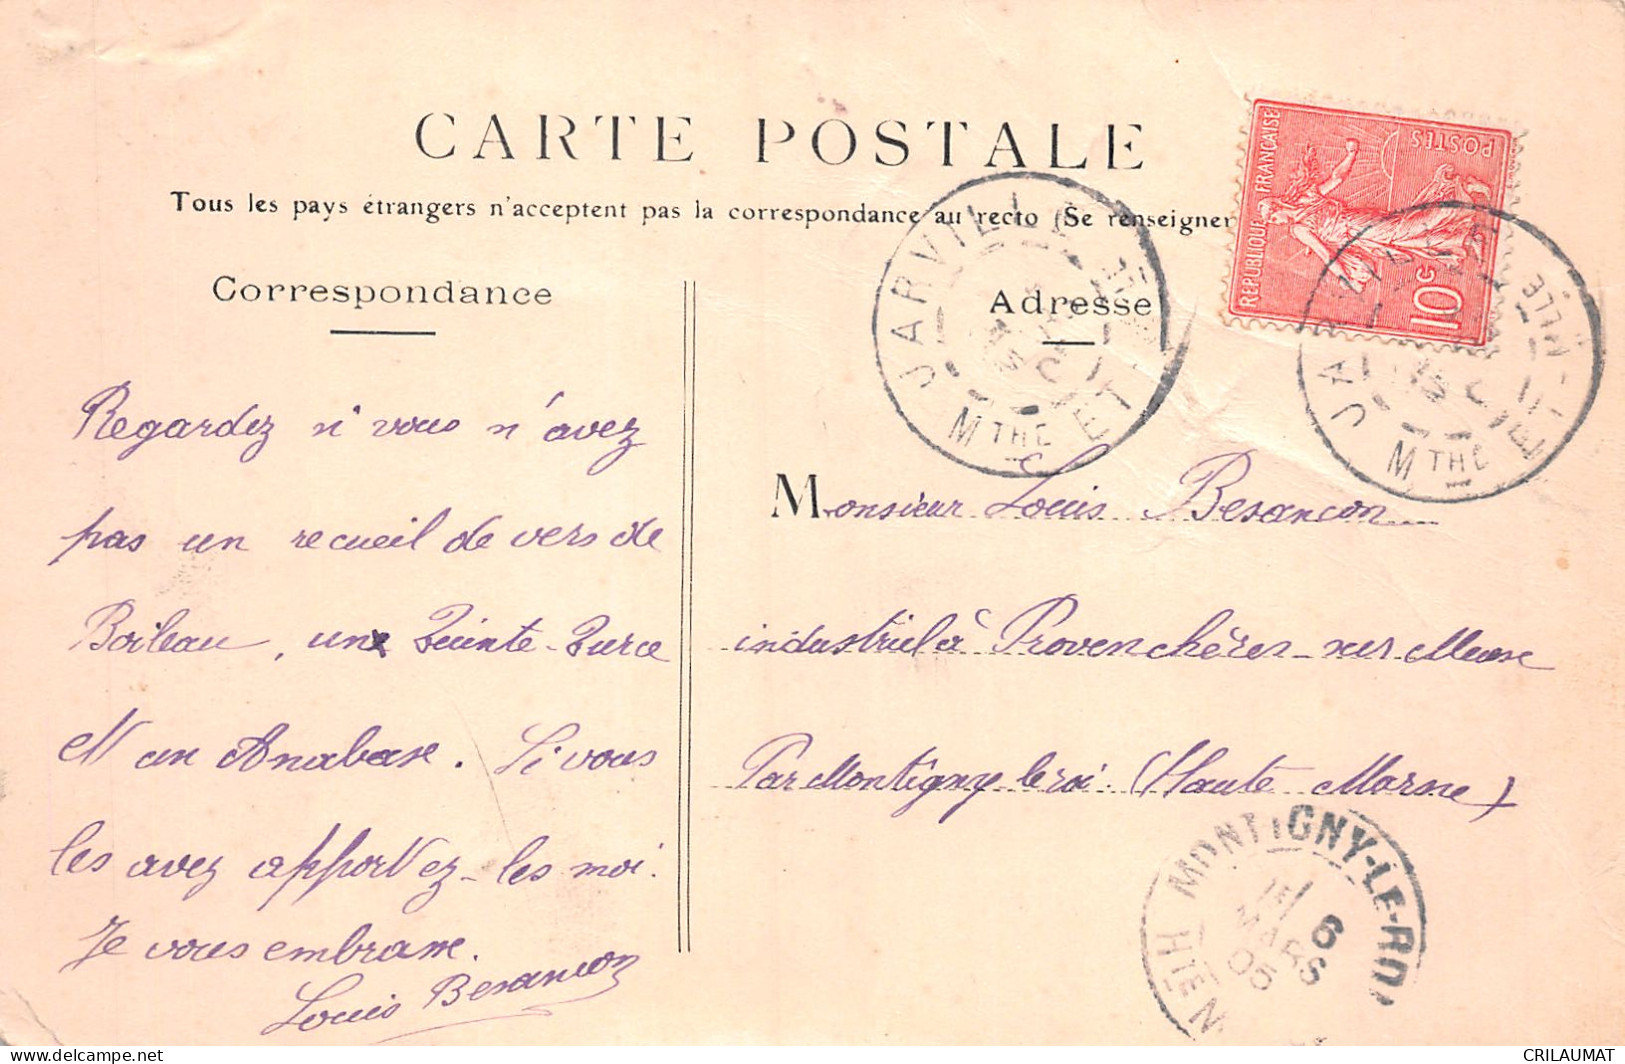 CARTE POSTALE
Tous les pays étrangers n'acceptent pas la correspondance au recto (Se renseigner
REPUBLIQUE FRANÇAISE
POSTES
10c
Correspondance
Adresse
JARVILLE
MTHE ET
JARVILLE
MTHE ET
Regardez si vous n'avez
pas un recueil de vers de
Boileau, un Quinte-Curce
et un Anabase. Si vous
les avez apportez-les moi.
Je vous embrasse.
Louis Besançon
Monsieur Louis Besançon
industriel à Provenchères-sur Meuse
Par Montigny le roi (Haute Marne)
MONTIGNY-LE-ROI
6
MARS
05
HTE M
CRILAUMAT